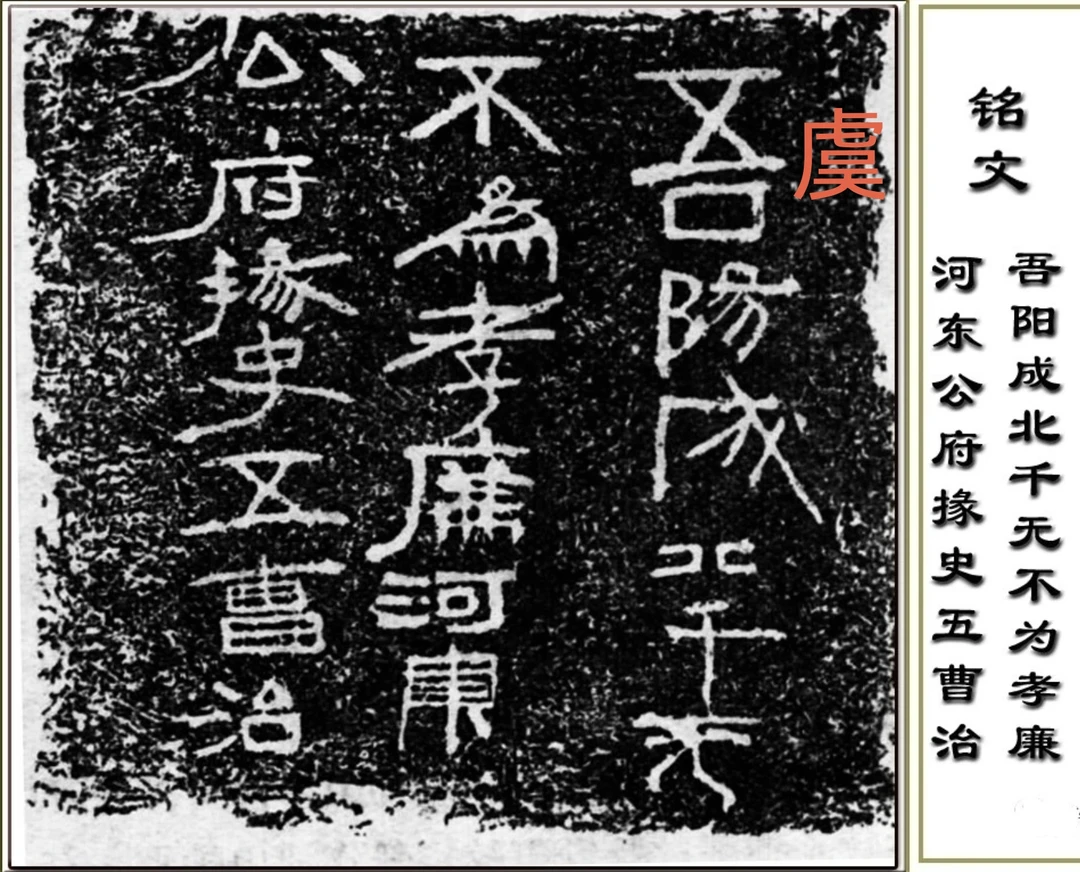 虞
吾陽成北千无
不為孝廉河東
公府掾史五曹治
铭文
吾阳成北千无不为孝廉
河东公府掾史五曹治